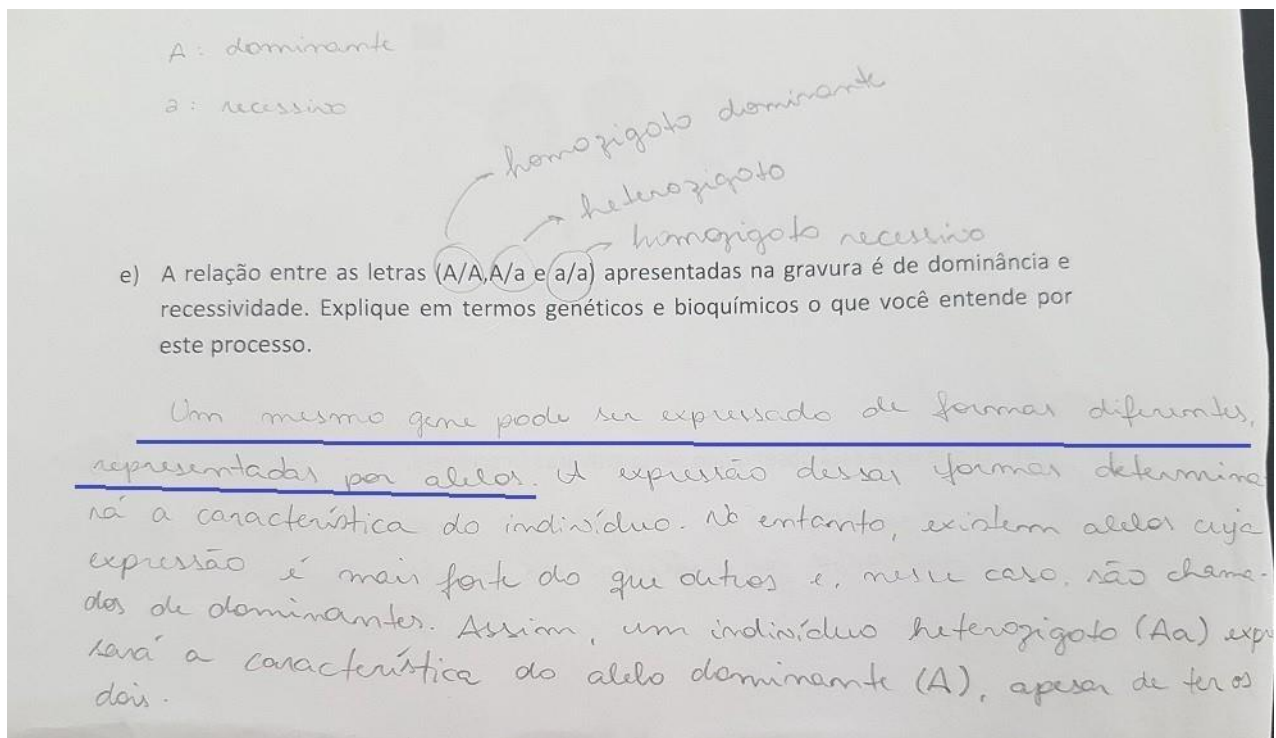 A: dominante
a: recessivo
homozigoto dominante
heterozigoto
homozigoto recessivo
e) A relação entre as letras (A/A,A/a e a/a) apresentadas na gravura é de dominância e
recessividade. Explique em termos genéticos e bioquímicos o que você entende por
este processo.
Um mesmo gene pode ser expressado de formas diferentes,
representadas por alelos. A expressão dessas formas determina
rá a característica do indivíduo. No entanto, existem alelos cuja
expressão é mais forte do que outros e, nesse caso, são chama-
dos de dominantes. Assim, um indivíduo heterozigoto (Aa) exp
sará a característica do alelo dominante (A), apesar de ter os
dois.